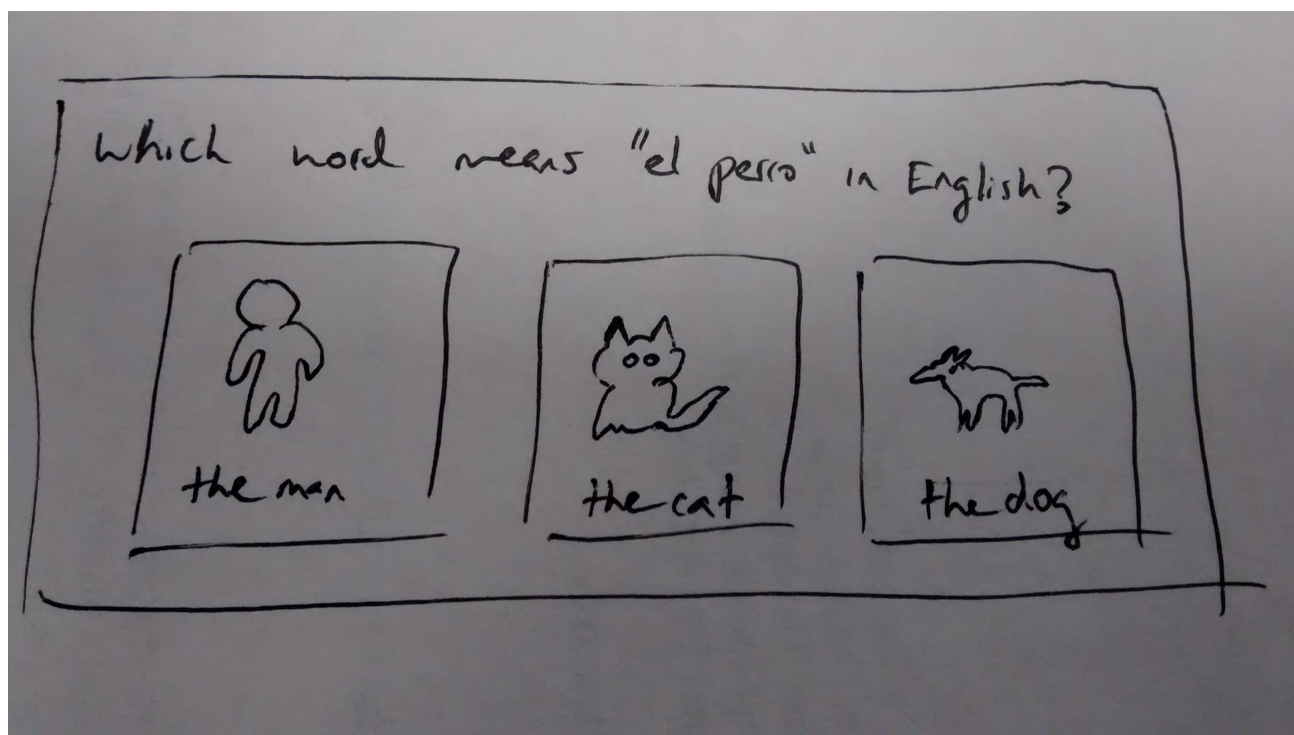 which word means "el perro" in English?
the man
the cat
the dog